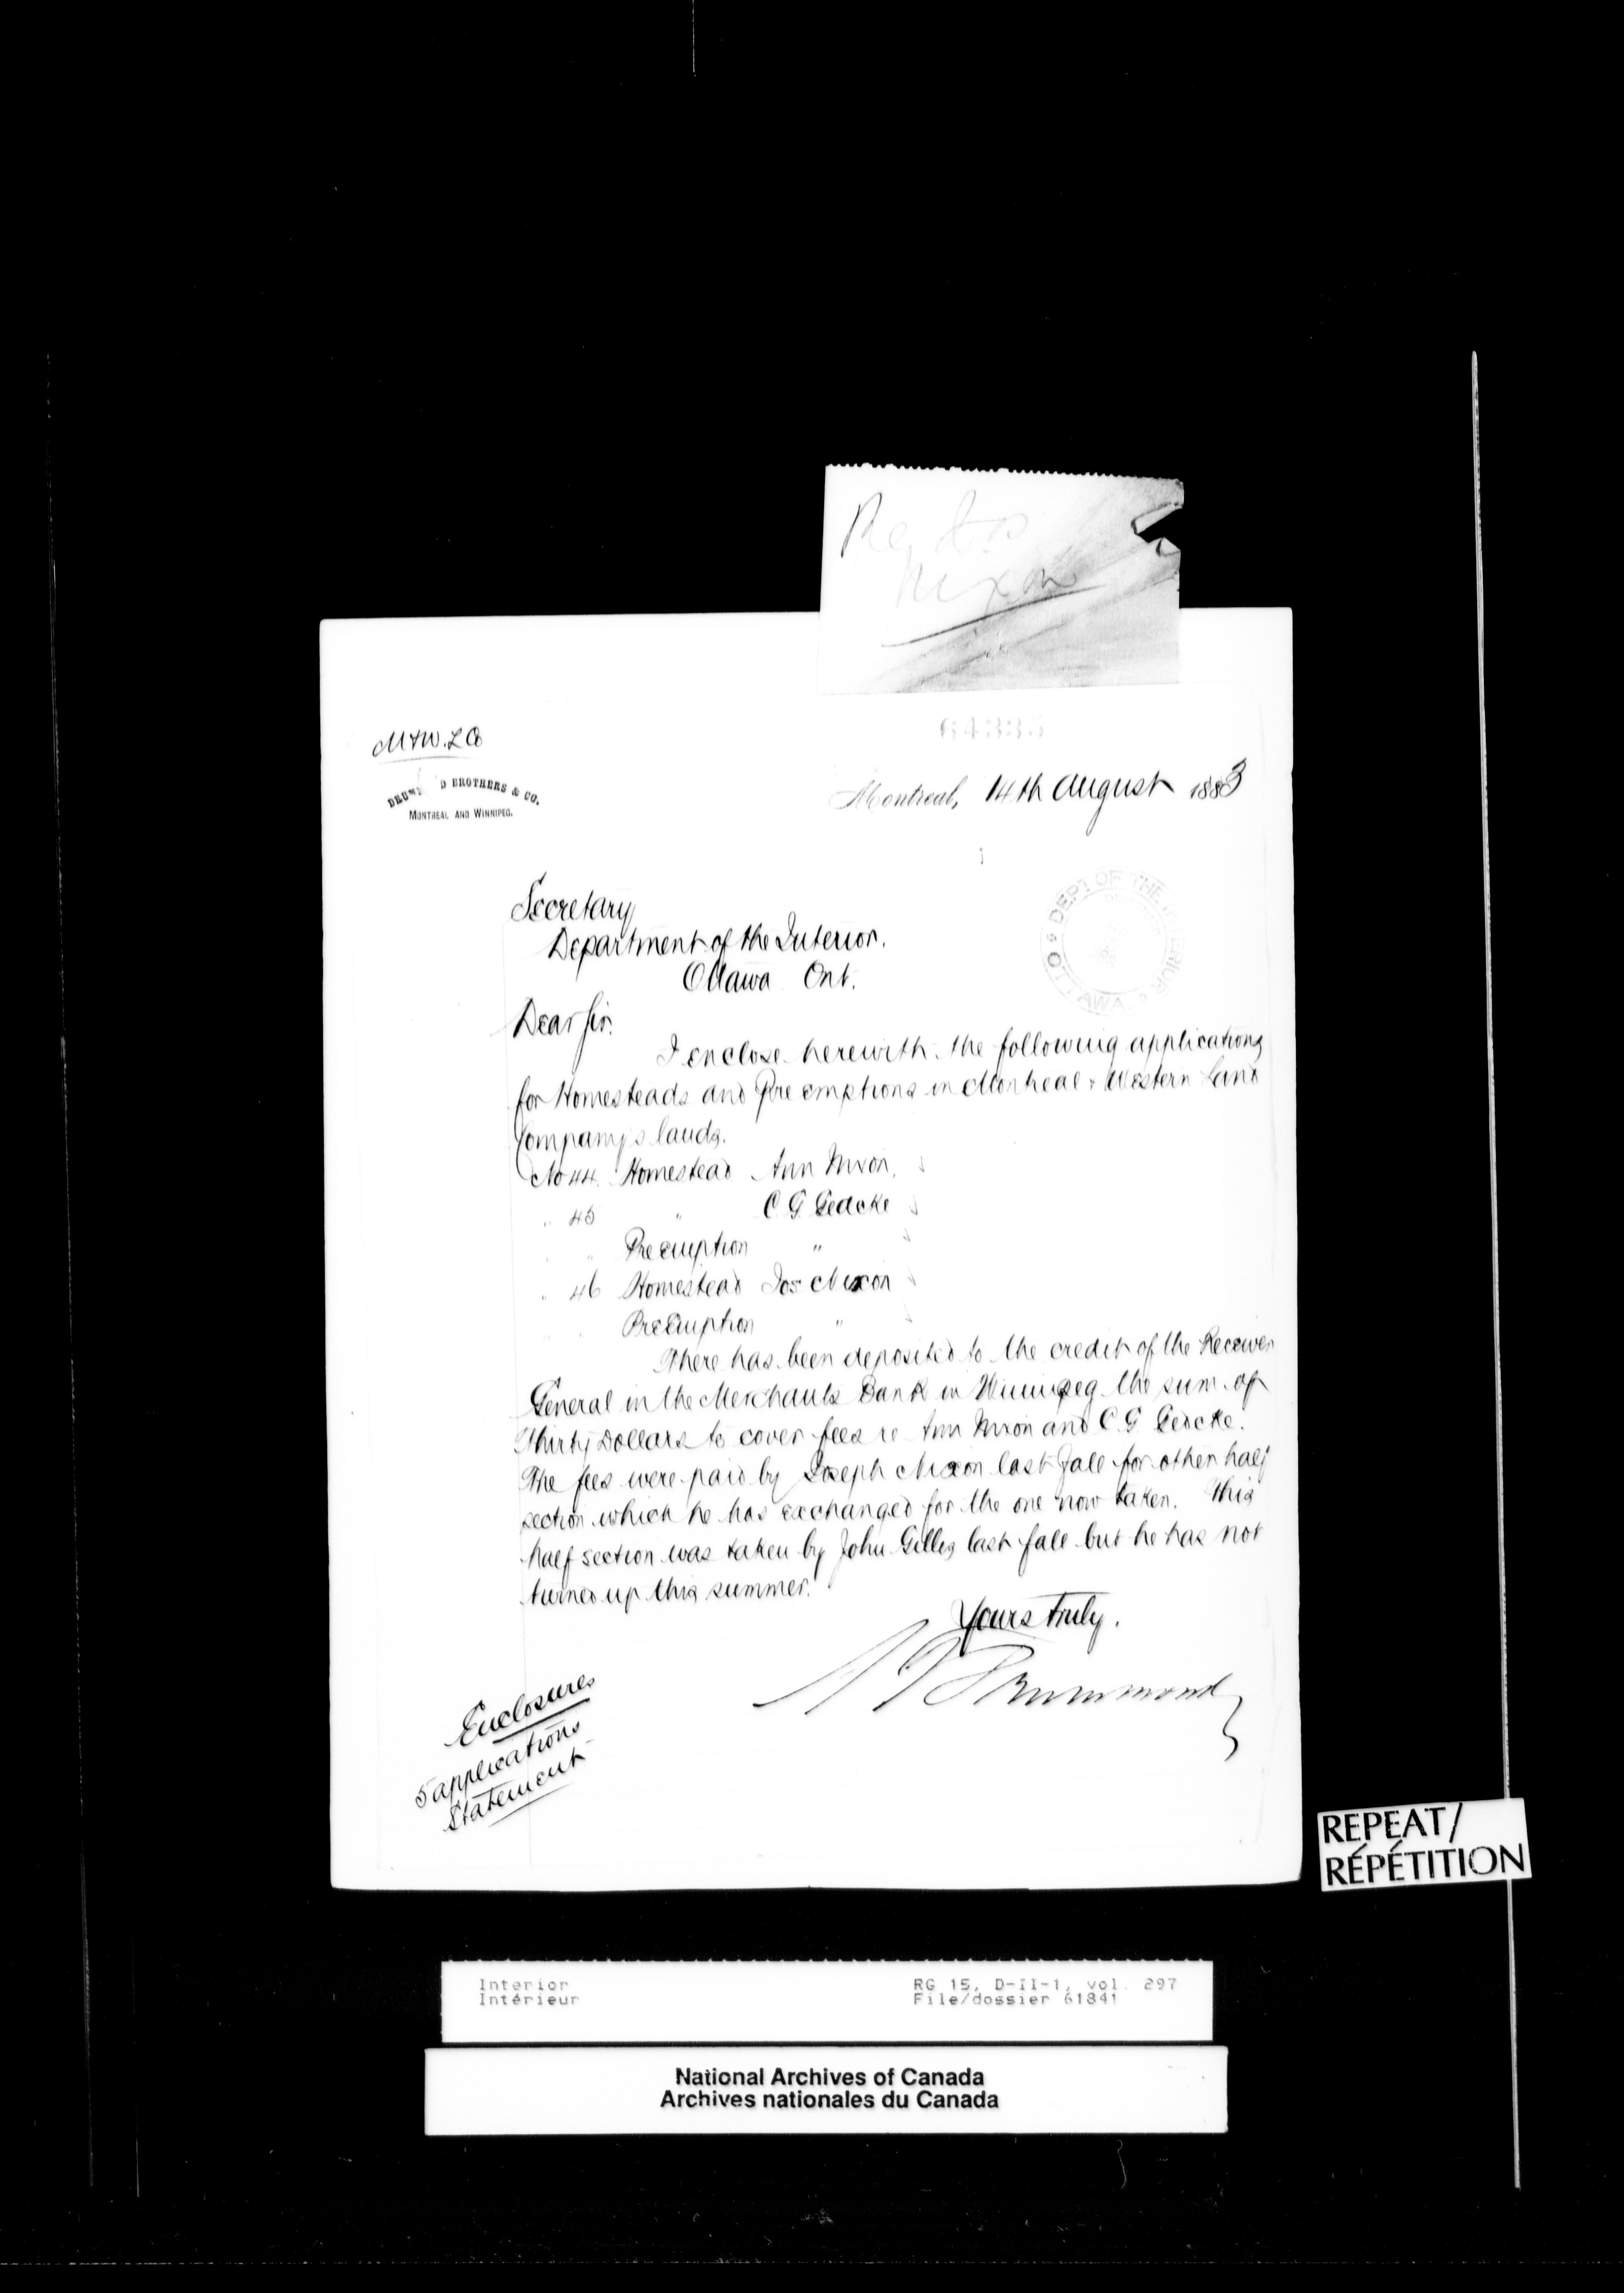 Re Jos
Nixon
64335
M & W. L Co
DRUM D BROTHERS & CO.
MONTREAL AND WINNIPEG.
Montreal, 14th August 1883
DEPT OF THE INTERIOR
OTTAWA
Secretary
Department of the Interior.
Ottawa Ont.
Dear Sir.
I enclose herewith the following applications
for Homesteads and Pre emptions in Montreal & Western Land
Company's lands.
No 44. Homestead Ann Nixon.
" 45 " C. G. Gedcke
" " Pre emption "
" 46 Homestead Jos Nixon
" " PreEmption "
There has been deposited to the credit of the Receiver
General in the Merchants Bank in Winnipeg the sum of
Thirty Dollars to cover fees re Ann Nixon and C. G Gedcke.
The fees were paid by Joseph Nixon last fall for other half
section which he has exchanged for the one now taken. This
half section was taken by John Gillis last fall but he has not
turned up this summer.
Yours truly.
Drummond
Enclosures
5 applications
Statement
REPEAT/
RÉPÉTITION
Interior RG 15, D-II-1, vol. 297
Intérieur File/dossier 61841
National Archives of Canada
Archives nationales du Canada